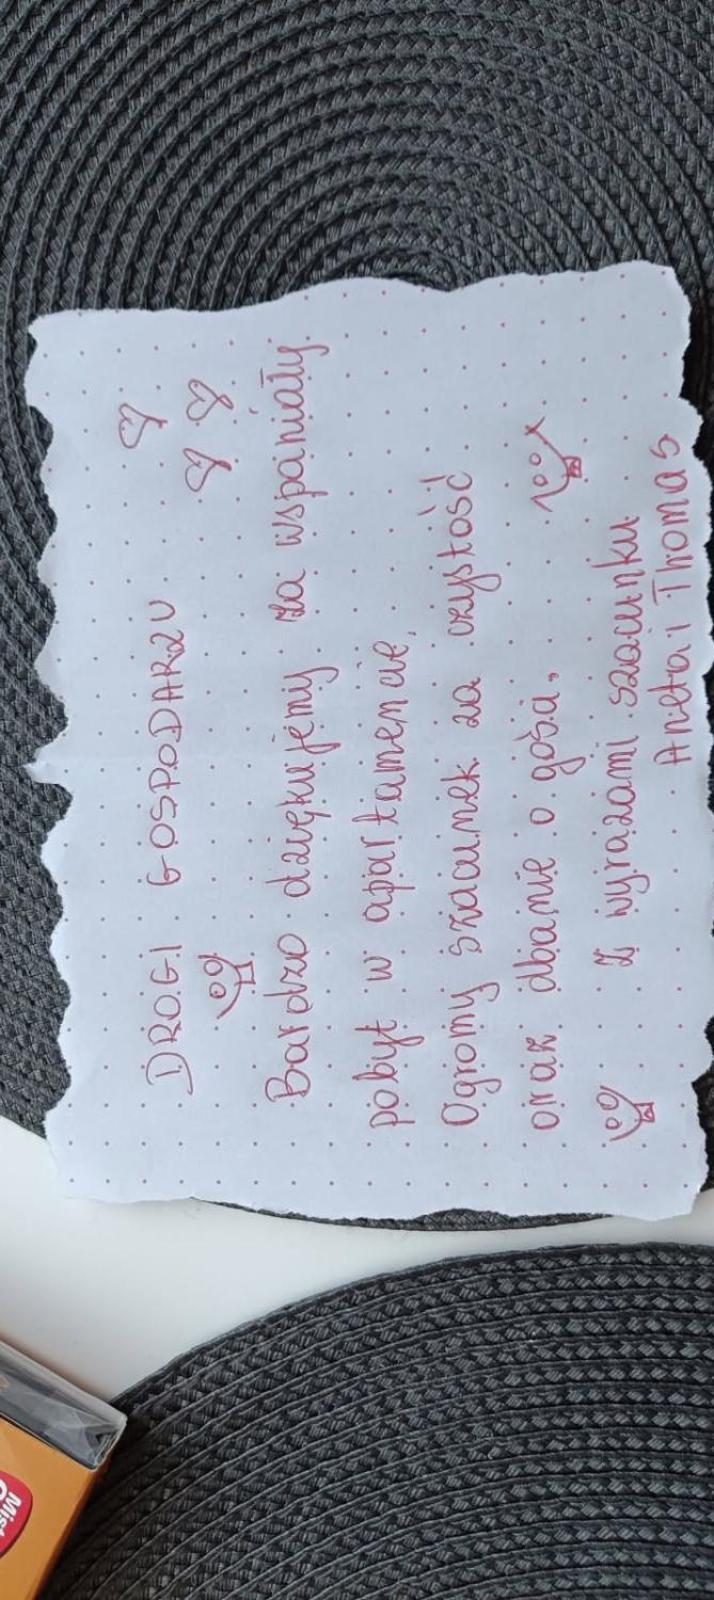 DROGI GOSPODARZU
Bardzo dziękujemy za wspaniały
pobyt w apartamencie.
Ogromy szacunek za czystość
oraz dbanie o gośa.
Z wyrazami szacunku
Aneta i Thomas